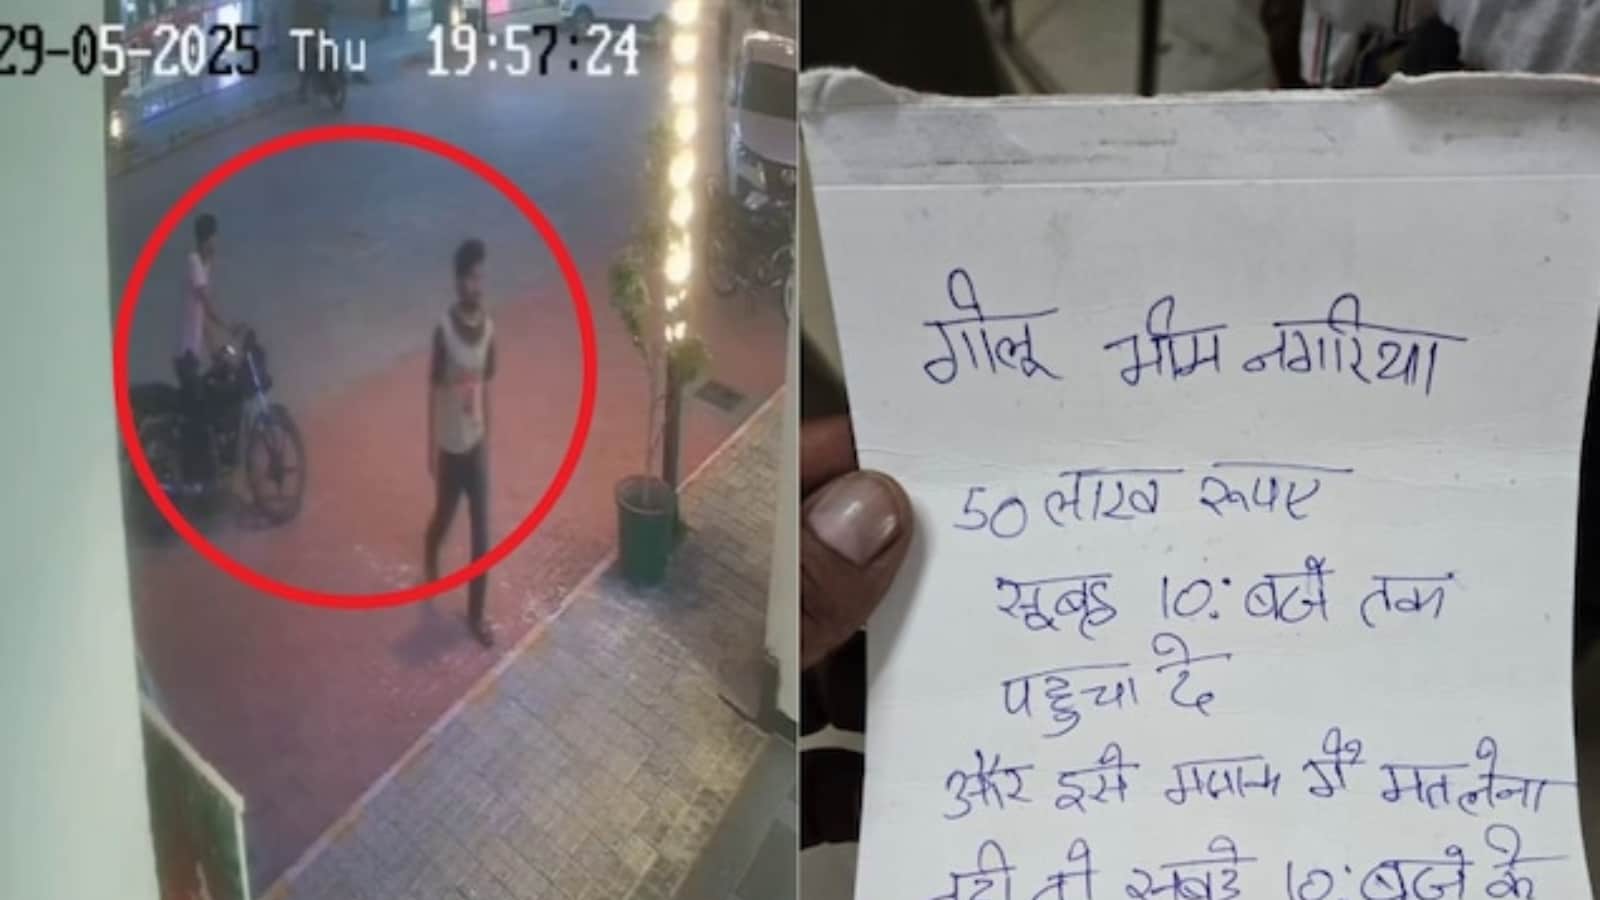 29-05-2025 Thu 19:57:24
गोलू मीम नगरिया
50 लाख रूपए
सूबह 10: बजे तक
पहुचा दे
और इसे मजाक में मत लेना
नही तो सुबह 10: बजे के